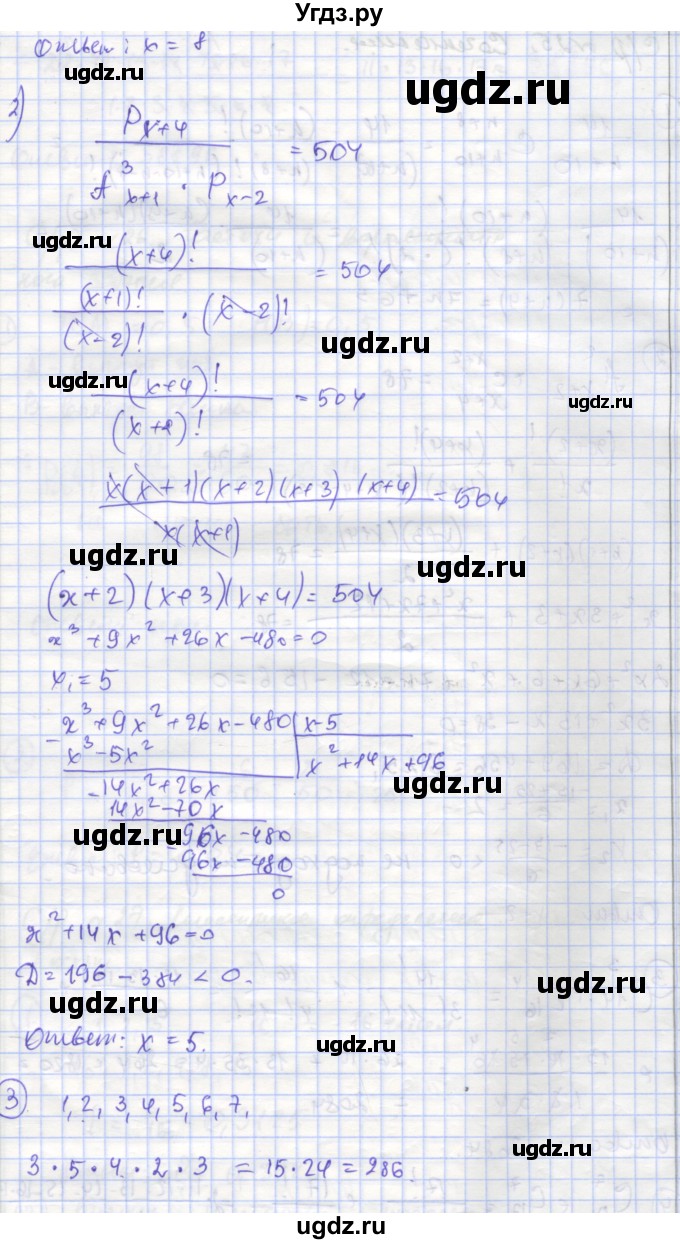 Угдз.ру
Ответ: x = 8
ugdz.ru
ugdz.ru
2)
P x+4
A 3 x+1 · P x−2 = 504
ugdz.ru
(x+4)!
(x+1)!
(x−2)! · (x−2)! = 504
ugdz.ru
ugdz.ru
(x+4)!
(x+1)! = 504
ugdz.ru
x(x+1)(x+2)(x+3)(x+4) = 504
x(x+1)
ugdz.ru
ugdz.ru
(x+2)(x+3)(x+4) = 504
x³+9x²+26x−480=0
x₁=5
x³+9x²+26x−480 | x−5
− x³−5x² | x²+14x+96
ugdz.ru
−14x²+26x
14x²−70x
ugdz.ru
−96x−480
96x−480
0
x²+14x+96=0
D=196−384<0.
ugdz.ru
ugdz.ru
Ответ: x = 5.
ugdz.ru
3 1, 2, 3, 4, 5, 6, 7,
ugdz.ru
3·5·4·2·3 = 15·24 = 286.
ugdz.ru
ugdz.ru